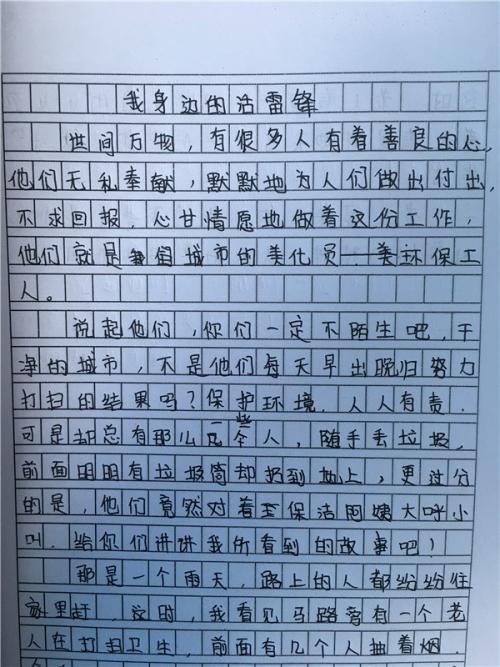 我身边的活雷锋
世间万物，有很多人有着善良的心，
他们无私奉献，默默地为人们做出付出，
不求回报，心甘情愿地做着这份工作，
他们就是城市的美化员，环保工
人。
说起他们，你们一定不陌生吧，干
净的城市，不是他们每天早出晚归努力
打扫的结果吗？保护环境，人人有责，
可是却总有那么一些人，随手丢垃圾，
前面明明有垃圾筒却扔到地上，更过分
的是，他们竟然对着保洁阿姨大呼小
叫，给你们讲讲我所看到的故事吧！
那是一个雨天，路上的人都纷纷往
家里赶，这时，我看见马路旁有一个老
人在打扫卫生，前面有几个人抽着烟，